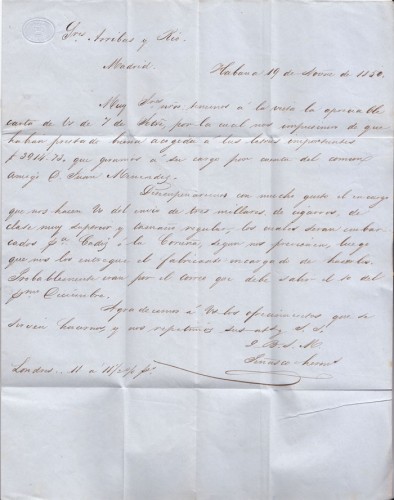 Sres Arribas y Rio.
Madrid.
Habana 19 de Novre de 1860.
Muy Sres ntros: tenemos à la vista la apreciable
carta de Vs de 7 de por la cual nos imponemos de que
habian prestado buena acogida a las letras importantes
$ 3914.75. que giramos à su cargo por cuenta del comun
amigo D. Juan Menendez.
Desempeñaremos con mucho gusto el encargo
que nos hacen Vs del envio de tres millares de cigarros, de
clase muy superior y tamaño regular, los cuales seran embar-
cados pa Cadiz ó la Coruña, segun nos previenen, luego
que nos los entregue el fabricante encargado de hacerlos.
Probablemente iran por el correo que debe salir el 10 del
pmo Diciembre.
Agradecemos à Vs los ofrecimientos que se
sirven hacernos y nos repetimos Ss. Ss.
Q. B. S. M.
Londres.. 11 a 11½ % Po.